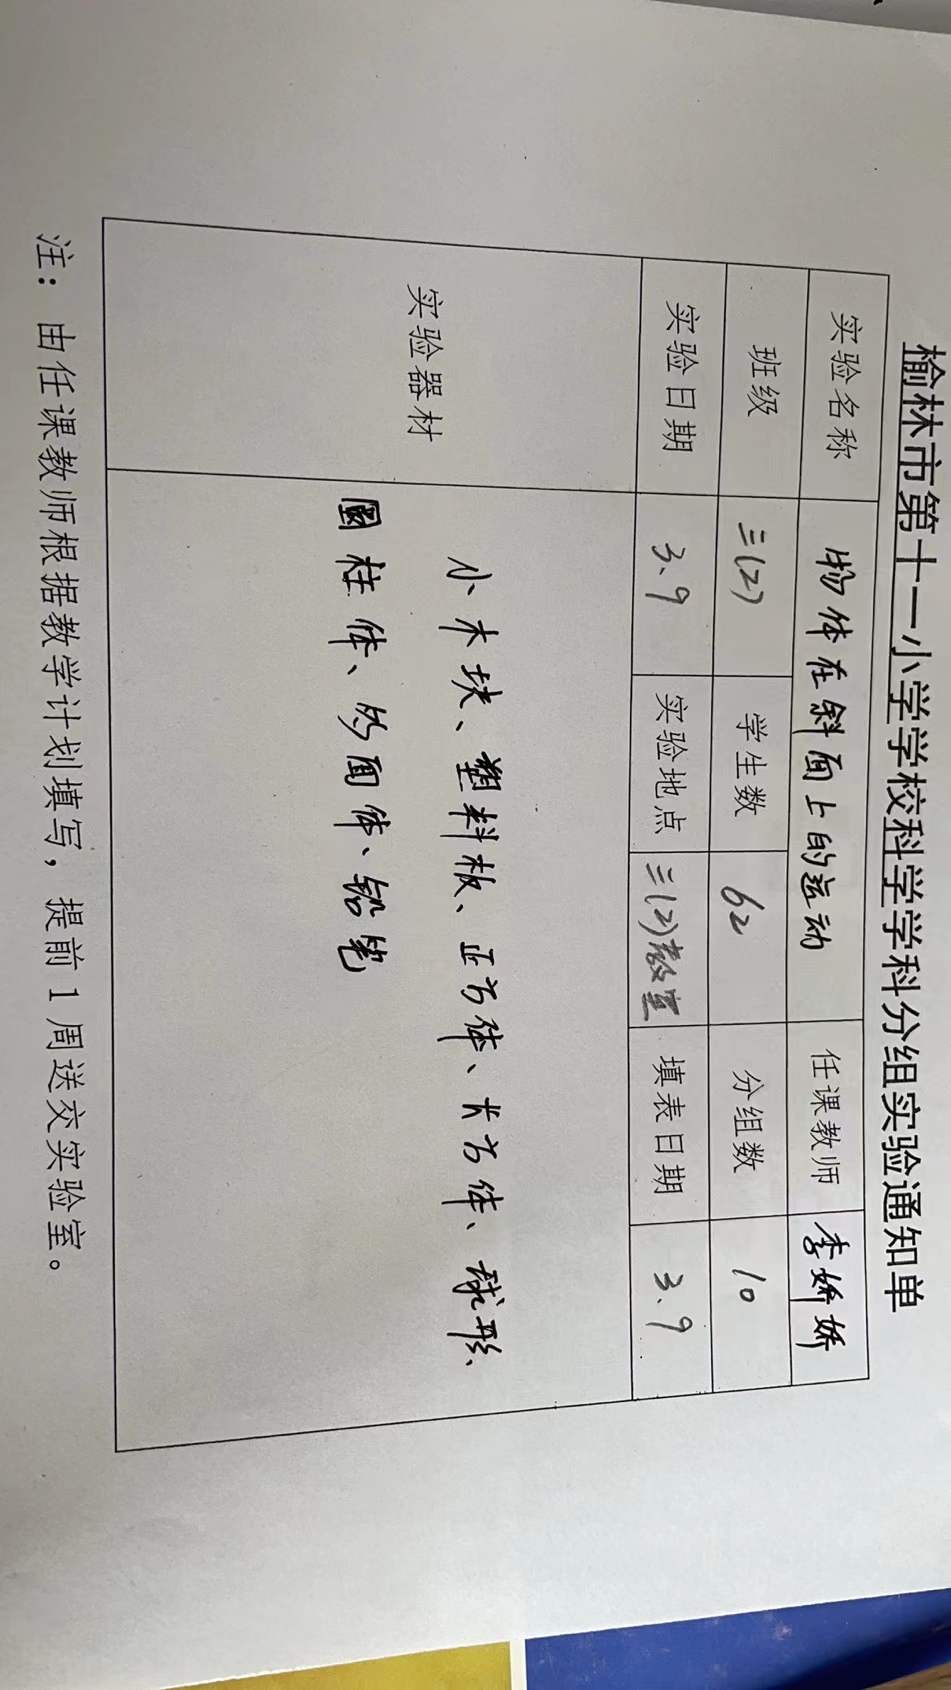 榆林市第十一小学学校科学学科分组实验通知单
实验名称 物体在斜面上的运动 任课教师 李娇娇
班级 三(2) 学生数 62 分组数 10
实验日期 3.9 实验地点 三(2)教室 填表日期 3.9
实验器材
小木块、塑料板、正方体、长方体、球形、
圆柱体、多面体、铅笔
注：由任课教师根据教学计划填写，提前1周送交实验室。